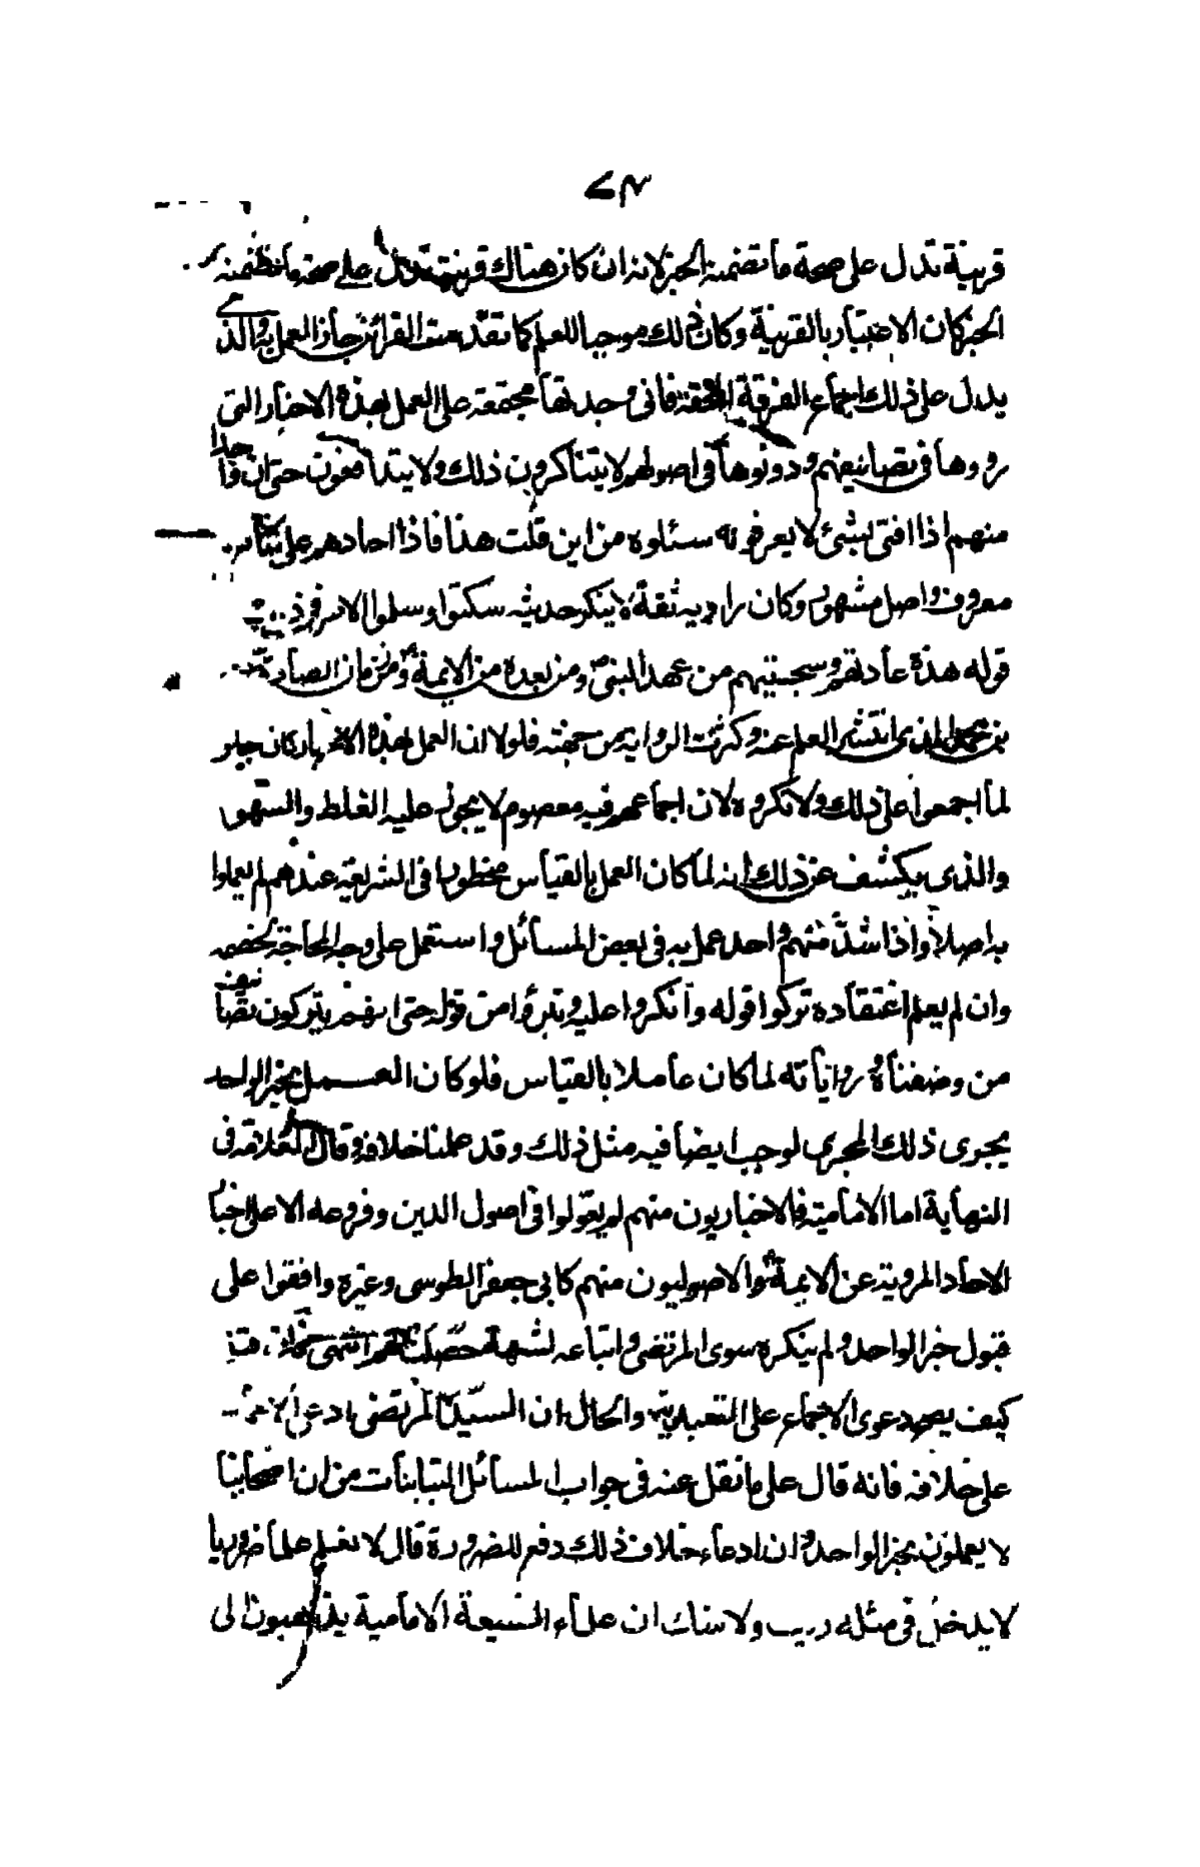 قرينة تدل على صحة ما تضمنه الخبر لانه ان كان هناك قرينة تدل على صحة ما تضمنه
الخبر كان الاعتبار بالقرينة وكان ذلك موجبا للعلم كما تقدمت القرائن جاز العمل به والذى
يدل على ذلك اجماع الفرقة المحقة فانى وجدتها مجتمعة على العمل بهذه الاخبار التى
رووها فى تصانيفهم ودونوها فى اصولهم لا يتناكرون ذلك ولا يتدافعون حتى ان واحدا
منهم اذا افتى بشئ لا يعرفونه سئلوه من اين قلت هذا فاذا احادهم على كتاب
معروف واصل مشهور وكان راويه ثقة لا ينكر حديثه سكتوا وسلموا الامر فى ذلك
قوله هذه عادتهم وسجيتهم من عهد النبى ص ومن بعده من الايمة ع ومن زمان الصادق
بن محمد الذى انتشر العلم عنه وكثرت الرواية من جهته فلولا ان العمل بهذه الاخبار كان جايز
لما اجمعوا على ذلك ولانكروه لان اجماعهم فيه معصوم لا يجوز عليه الغلط والسهو
والذى يكشف عن ذلك انه لما كان العمل بالقياس محظورا فى الشريعة عندهم لم يعملوا
به اصلا واذا شذ منهم واحد عمل به فى بعض المسائل واستعمل على وجه المحاجة لخصمه
وان لم يعلم اعتقاده تركوا قوله وانكروا عليه وتبرؤا من قوله حتى انهم يتركون تصانيف
من وصفناه ورواياته لما كان عاملا بالقياس فلو كان العمل بخبر الواحد
يجرى ذلك المجرى لوجب ايضا فيه مثل ذلك وقد علمنا خلافه وقال العلامة فى
النهاية اما الامامية فالاخباريون منهم لم يعولوا فى اصول الدين وفروعه الا على اخبار
الاحاد المروية عن الايمة ع والاصوليون منهم كابى جعفر الطوسى وغيره وافقوا على
قبول خبر الواحد ولم ينكره سوى المرتضى واتباعه لشبهة حصلت لهم انتهى
كيف يصح دعوى الاجماع على التعبد به والحال ان السيد المرتضى ادعى الاجماع
على خلافه فانه قال على ما نقل عنه فى جواب المسائل التبانيات من ان اصحابنا
لا يعملون بخبر الواحد وان ادعاء خلاف ذلك دفع للضرورة قال لا نعلم علما ضروريا
لا يدخل فى مثله ريب ولا شك ان علماء الشيعة الامامية يذهبون الى